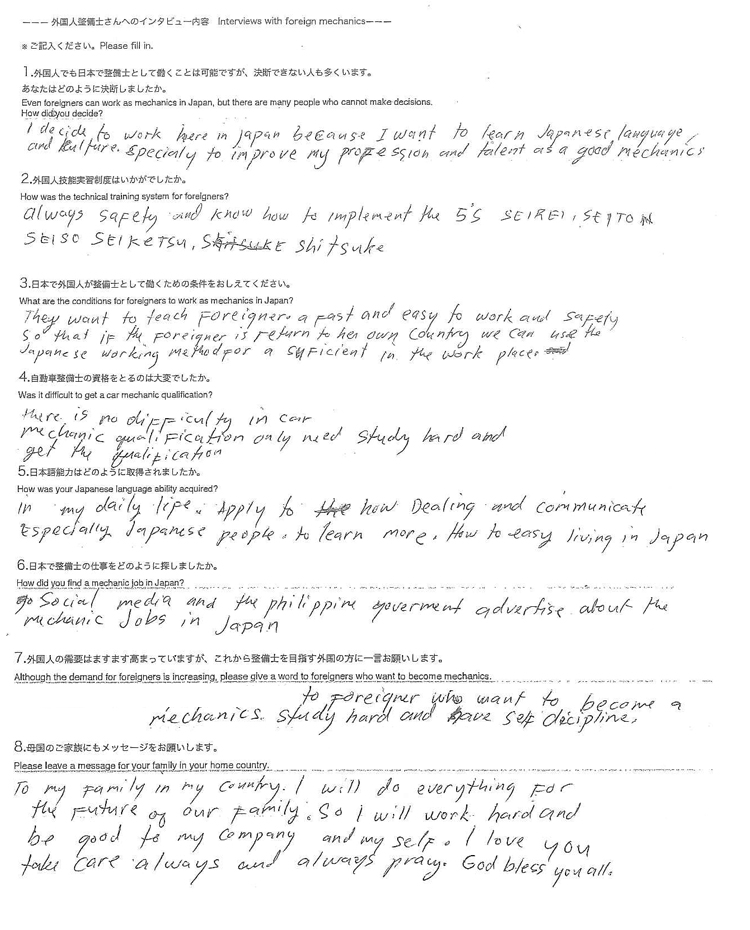 ーーー 外国人整備士さんへのインタビュー内容 Interviews with foreign mechanicsーーー
※ご記入ください。Please fill in.
1.外国人でも日本で整備士として働くことは可能ですが、決断できない人も多くいます。
あなたはどのように決断しましたか。
Even foreigners can work as mechanics in Japan, but there are many people who cannot make decisions.
How did you decide?
I decide to work here in japan because I want to learn Japanese language,
and kulture. Specialy to improve my profession and talent as a good mechanics
2.外国人技能実習制度はいかがでしたか。
How was the technical training system for foreigners?
always safety and know how to implement the 5'S SEIREI, SEITON
SEISO SEIKETSU, shitsuke
3.日本で外国人が整備士として働くための条件をおしえてください。
What are the conditions for foreigners to work as mechanics in Japan?
They want to teach Foreigner. a fast and easy to work and safety
So that if the Foreigner is return to her own country we can use the
Japanese working method for a suficient in the work place.
4.自動車整備士の資格をとるのは大変でしたか。
Was it difficult to get a car mechanic qualification?
there is no difficulty in car
mechanic qualification only need study hard and
get the qualification
5.日本語能力はどのように取得されましたか。
How was your Japanese language ability acquired?
In my daily life. Apply to how Dealing and communicate
Especially Japanese people. to learn more. How to easy living in Japan
6.日本で整備士の仕事をどのように探しましたか。
How did you find a mechanic job in Japan?
Social media and the philippine goverment advertise about the
mechanic Jobs in Japan
7.外国人の需要はますます高まっていますが、これから整備士を目指す外国の方に一言お願いします。
Although the demand for foreigners is increasing, please give a word to foreigners who want to become mechanics.
to foreigner who want to become a
mechanics. study hard and have self dicipline.
8.母国のご家族にもメッセージをお願いします。
Please leave a message for your family in your home country.
To my family in my country. I will do everything for
the future of our family. So I will work hard and
be good to my company and my self. I love you
take care always and always pray. God bless you all.